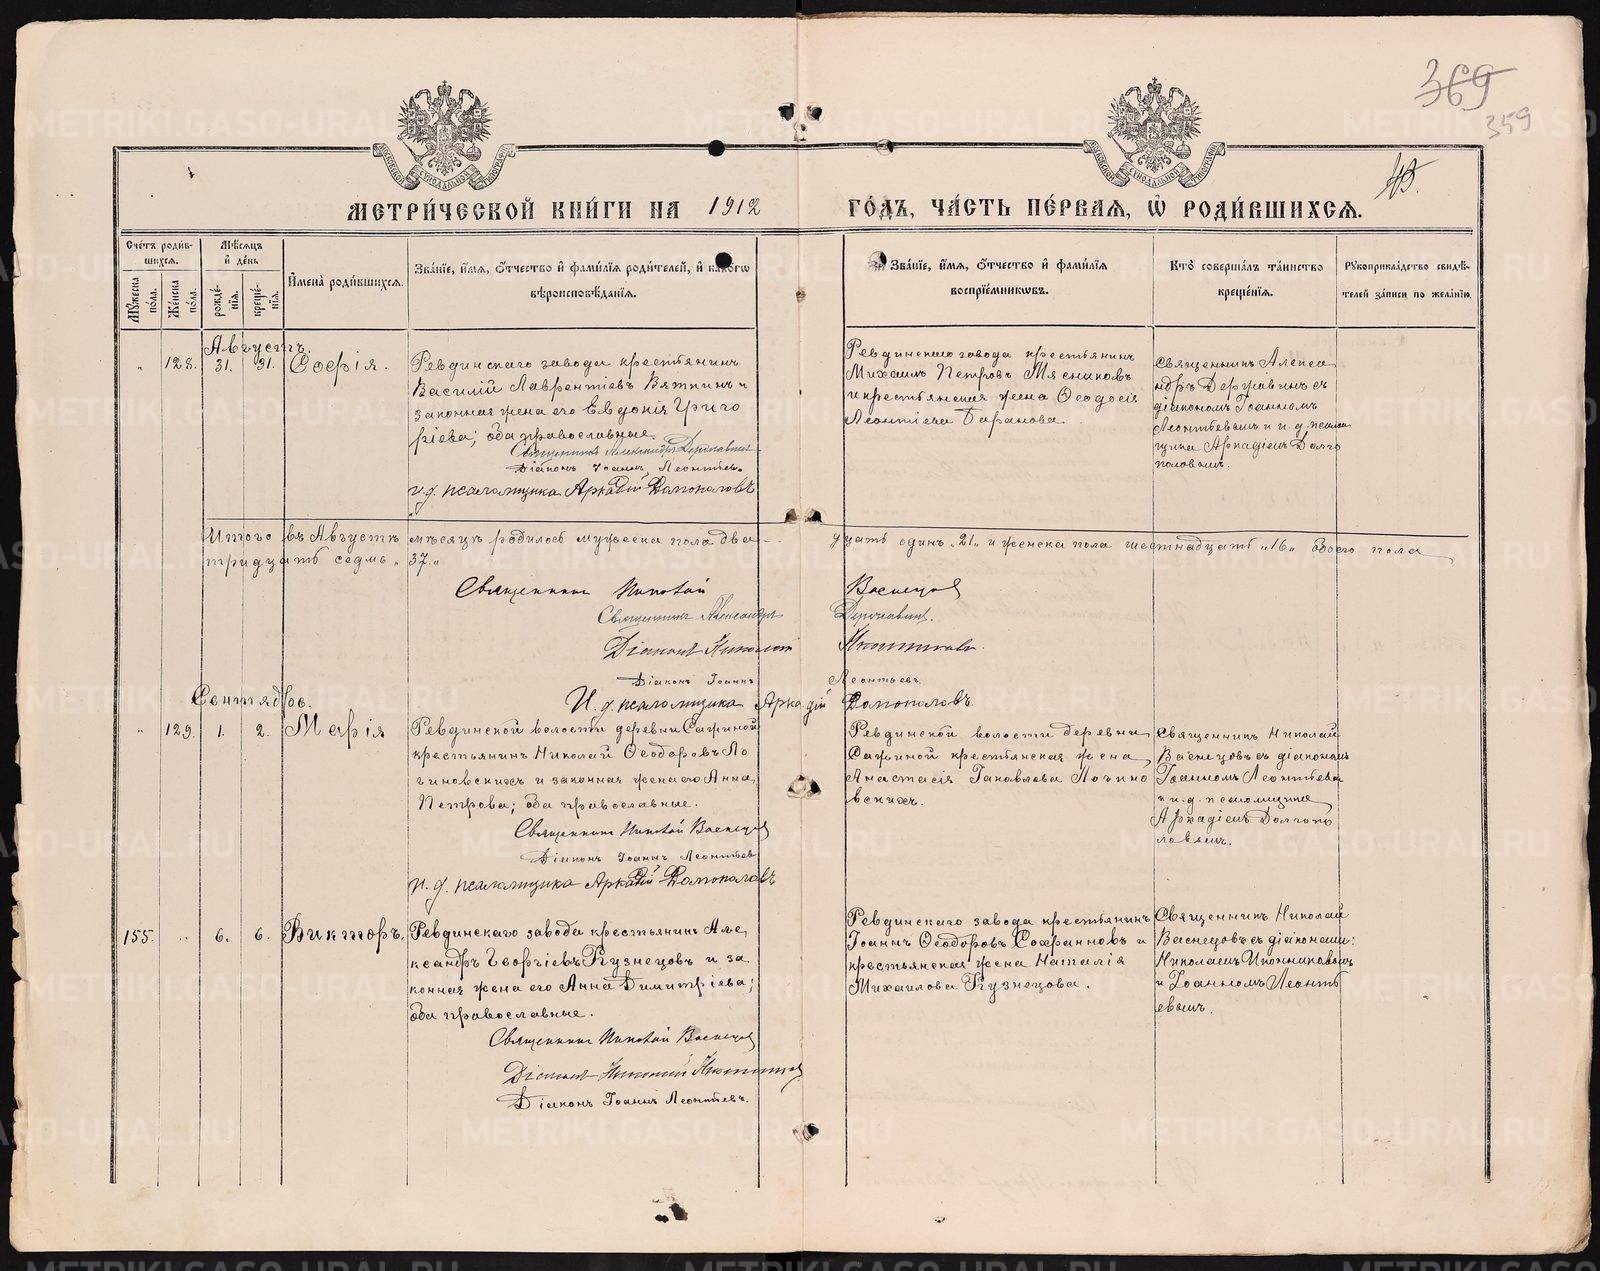 369
359
45.
МЕТРИ́ЧЕСКОЙ КНИ́ГИ НА 1912 ГО́ДЪ, ЧА́СТЬ ПЕ́РВАЯ, Ѡ҆ РОДИ́ВШИХСЯ.
Сче́тъ роди́в-
шихся.
Мѣ́сяцъ
и҆ де́нь
Му́жеска
по́ла.
Же́нска
по́ла.
рожде́-
нїя.
креще́-
нїя.
И҆мена̀ роди́вшихся.
Зва́нїе, и҆́мя, ѻ҆́тчество и҆ фами́лїя роди́телей, и҆ како́гѡ
вѣроисповѣ́данїя.
Зва́нїе, и҆́мя, ѻ҆́тчество и҆ фами́лїя
воспрїе́мникѡвъ.
Кто̀ соверша́лъ та́инство
креще́нїя.
Рукоприкла́дство свидѣ́-
телей за́писи по жела́нїю.
Августъ.
„ 128. 31. 31. Софія.
Ревдинскаго завода крестьянинъ
Василій Лаврентіевъ Вяткинъ и
законная жена его Евдокія Григо
ріева; оба православные.
Священникъ Александръ Державинъ
Діаконъ Іоаннъ Леонтьев
и. д. псаломщика Аркадій Долгополовъ
Ревдинскаго завода крестьянинъ
Михаилъ Петровъ Мясниковъ
и крестьянская жена Ѳеодосія
Леонтіева Баранова.
Священникъ Алекса
ндръ Державинъ съ
діакономъ Іоанномъ
Леонтьевымъ и и. д. псалом
щика Аркадіемъ Долго
половымъ.
Итого въ Августѣ мѣсяцѣ родилось мужеска пола два дцать одинъ „21„ и женска пола шестнадцать „16„ обоего пола
тридцать седмь „37.„
Священникъ Николай Васнецов
Священникъ Александръ Державинъ.
Діаконъ Николай Иконников
Діаконъ Іоаннъ Леонтьевъ
И. д. псаломщика Аркадій Долгополовъ
Сентябрь.
„ 129. 1. 2. Марія
Ревдинской волости деревни Сажиной
крестьянинъ Николай Ѳеодоровъ Ло
гиновскихъ и законная жена его Анна
Петрова; оба православные.
Священникъ Николай Васнецов
Діаконъ Іоаннъ Леонтьев
и. д. псаломщика Аркадій Долгополовъ
Ревдинской волости деревни
Сажиной крестьянская жена
Анастасія Іаковлева Логино
вскихъ.
Священникъ Николай
Васнецовъ съ діакономъ
Іоанномъ Леонтьевы
и и. д. псаломщика
Аркадіемъ Долгопо
ловымъ.
155. „ 6. 6. Викторъ.
Ревдинскаго завода крестьянинъ Але
ксандръ Георгіевъ Кузнецовъ и за
конная жена его Анна Димитріева;
оба православные.
Священникъ Николай Васнецов
Діаконъ Николай Иконников
Діаконъ Іоаннъ Леонтьевъ.
Ревдинскаго завода крестьянинъ
Іоаннъ Ѳеодоровъ Софронновъ и
крестьянская жена Наталія
Михаилова Кузнецова.
Священникъ Николай
Васнецовъ съ діаконами:
Николаемъ Иконниковымъ
и Іоанномъ Леонть
евымъ.
METRIKI.GASO-URAL.RU